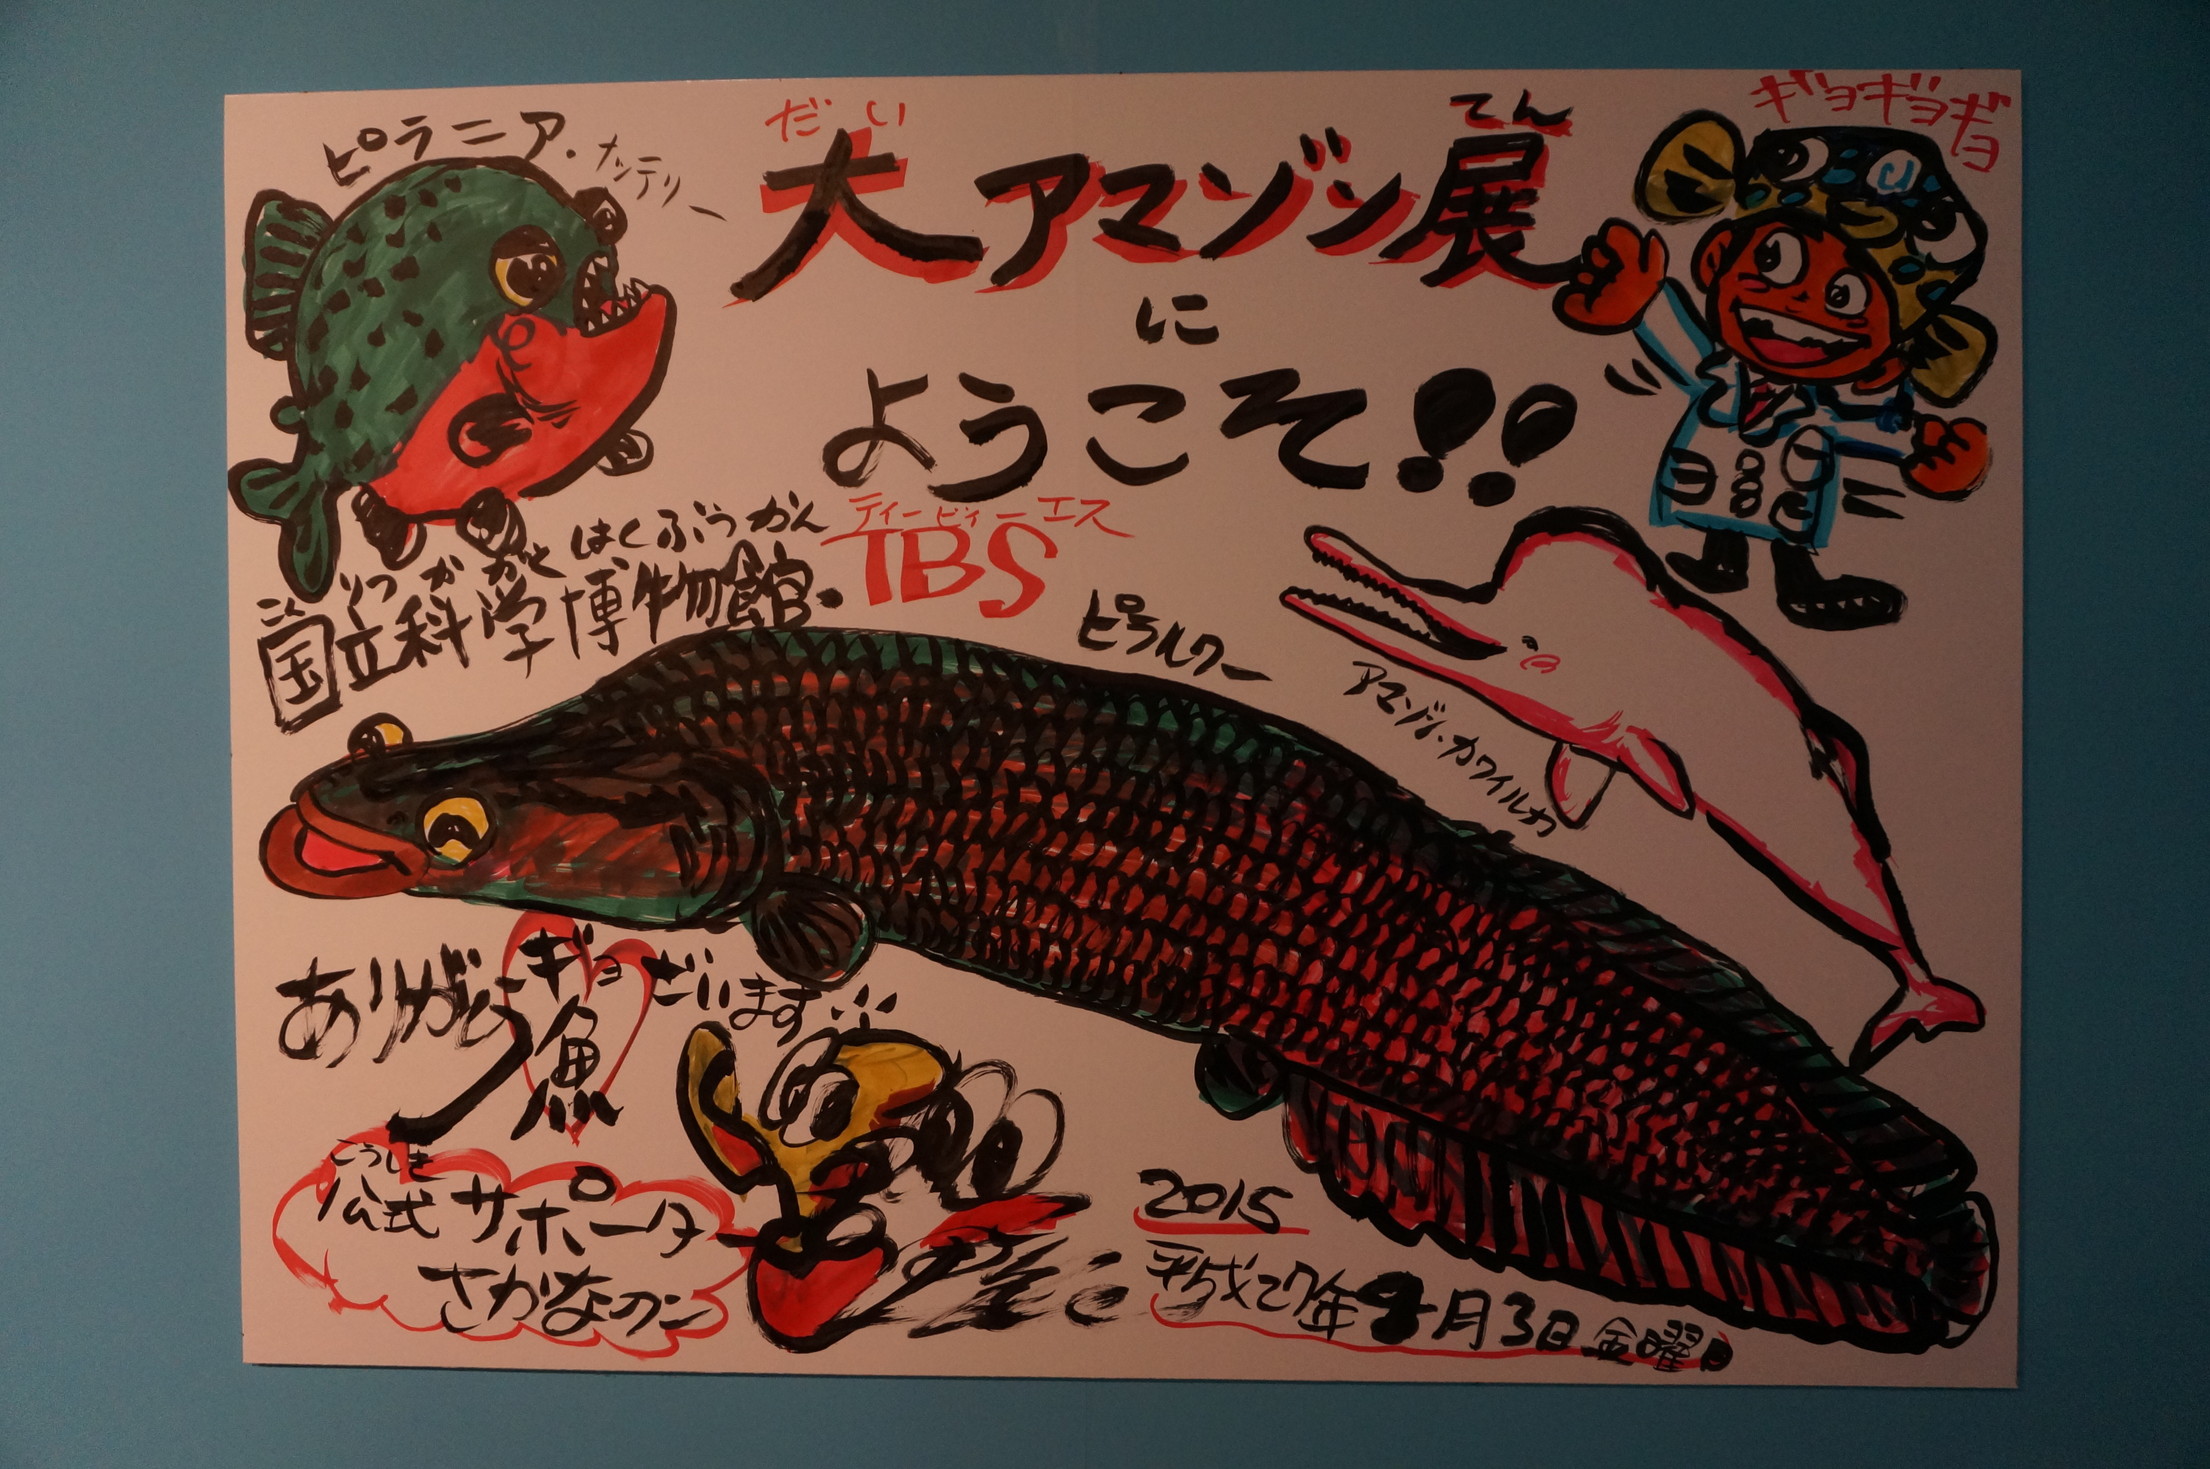 ギョギョギョ
ピラニア・ナッテリー
だい
てん
大アマゾン展
に
ようこそ!!
こくりつかがくはくぶつかん
国立科学博物館・
ティービィーエス
TBS
ピラルクー
アマゾン・カワイルカ
ありがとうギョざいます
魚
こうしき
公式サポータ
さかなクン
2015
平成27年4月3日金曜日